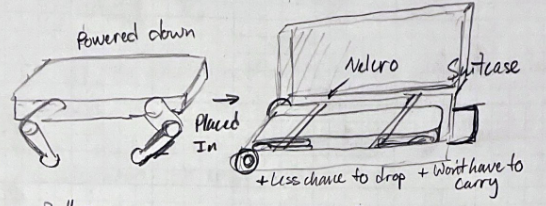 Powered down
Placed
In
Velcro
Suitcase
+ Less chance to drop
+ Won't have to
carry